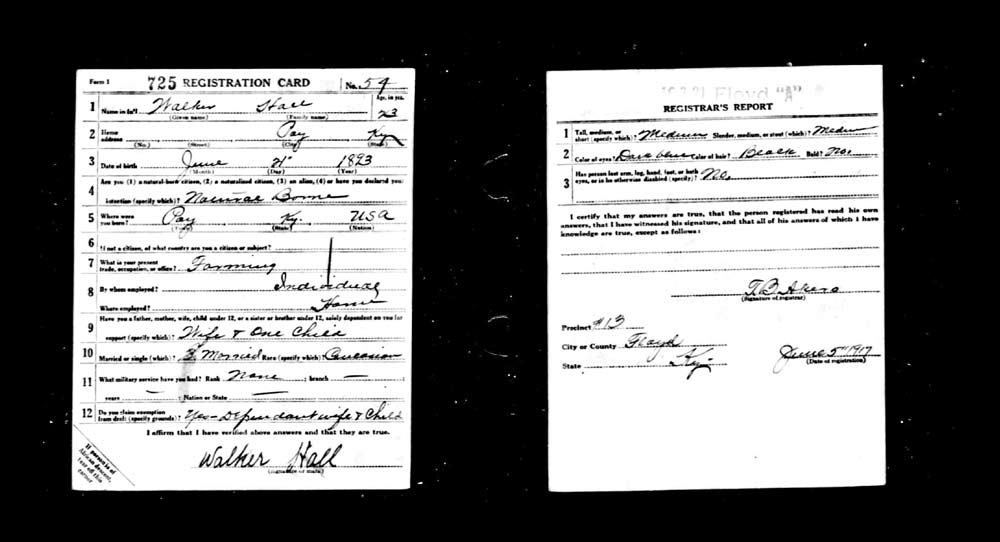 Form 1
725 REGISTRATION CARD No. 54
1 Name in full Walker Hall Age, in yrs. 23
(Given name) (Family name)
2 Home address Pay Ky
(No.) (Street) (City) (State)
3 Date of birth June 21" 1893
(Month) (Day) (Year)
4 Are you (1) a natural-born citizen, (2) a naturalized citizen, (3) an alien, (4) or have you declared your
intention (specify which)? Natural Borne
5 Where were you born? Pay Ky. USA
(Town) (State) (Nation)
6 If not a citizen, of what country are you a citizen or subject?
7 What is your present trade, occupation, or office? Farming
8 By whom employed? Individual
Where employed? Home
9 Have you a father, mother, wife, child under 12, or a sister or brother under 12, solely dependent on you for
support (specify which)? Wife & One Child
10 Married or single (which)? Married Race (specify which)? Caucasian
11 What military service have you had? Rank None ; branch —
years — ; Nation or State —
12 Do you claim exemption from draft (specify grounds)? Yes - Dependant wife & Child
I affirm that I have verified above answers and that they are true.
Walker Hall
(Signature or mark)
If person is of
African descent,
tear off this
corner
Floyd "A"
REGISTRAR'S REPORT
1 Tall, medium, or short (specify which)? Medium Slender, medium, or stout (which)? Medm
2 Color of eyes? Dark blue Color of hair? Black Bald? No.
3 Has person lost arm, leg, hand, foot, or both
eyes, or is he otherwise disabled (specify)? No.
I certify that my answers are true, that the person registered has read his own
answers, that I have witnessed his signature, and that all of his answers of which I have
knowledge are true, except as follows:
T.B. Akers
(Signature of registrar)
Precinct #13
City or County Floyd
State Ky.
June 5th 1917
(Date of registration)